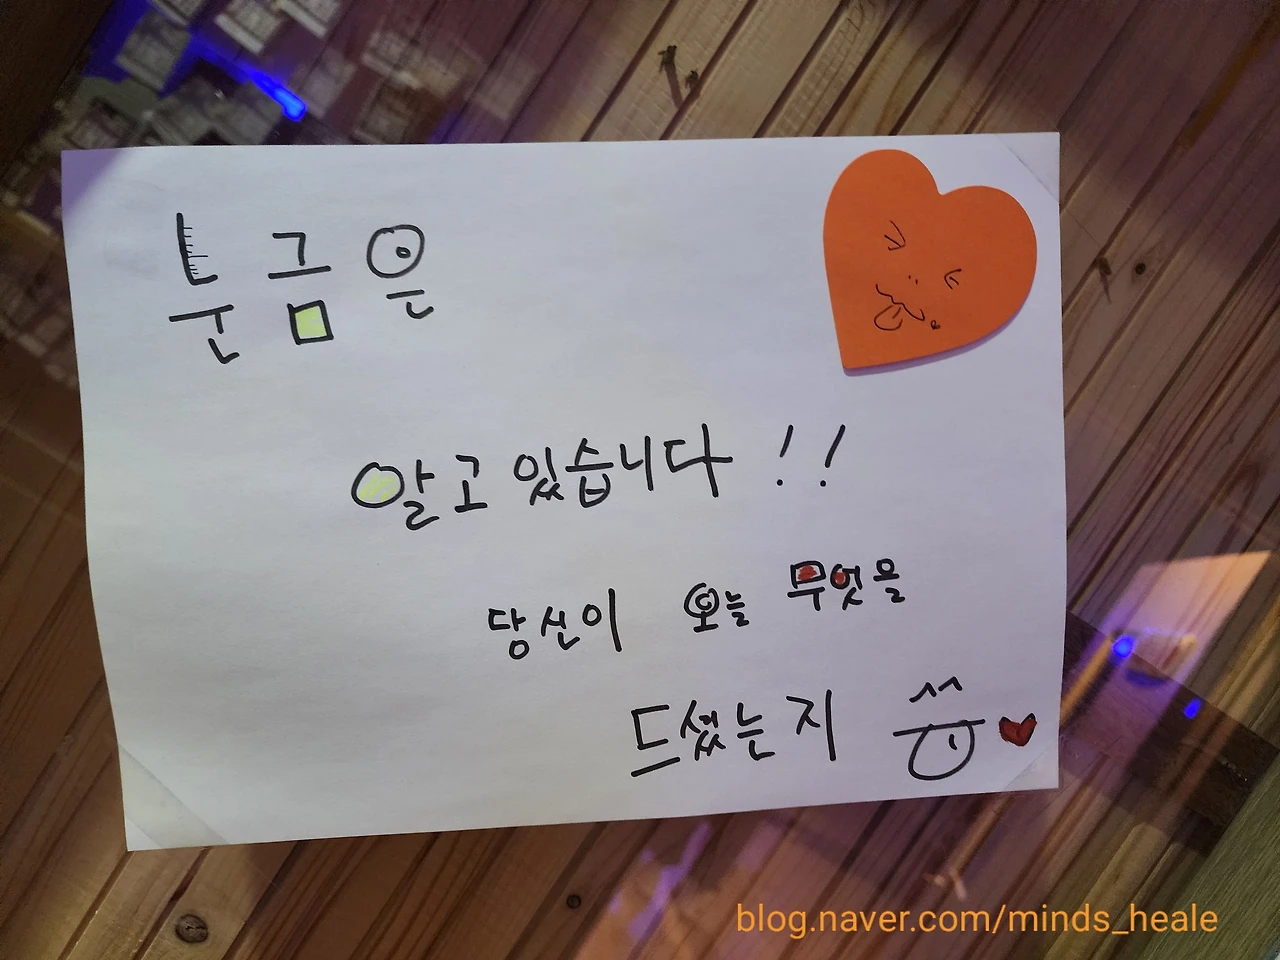 눈금은
알고 있습니다 !!
당신이 오늘 무엇을
드셨는지
blog.naver.com/minds_heale